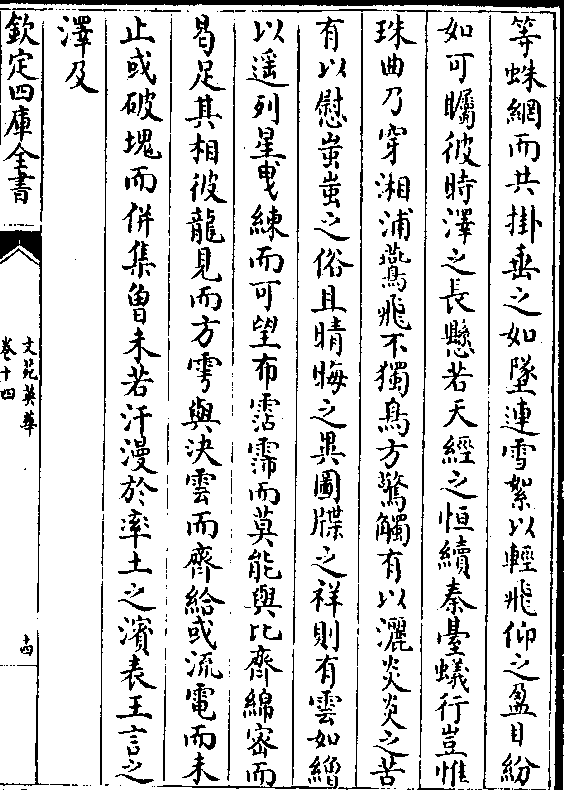 等蛛網而共掛垂之如墜連雪絮以輕飛仰之盈目紛
如可矚彼時澤之長懸若天經之恒續秦臺蟻行豈惟
珠曲乃穿湘浦鷰飛不獨鳥方驚觸有以灑炎炎之苦
有以慰蚩蚩之俗且晴晦之異圖牒之祥則有雲如繒
以遥列星曵練而可望布霑霈而莫能與比齊綿密而
曷足其相彼龍見而方雩與決雲而齊給或流電而未
止或破塊而併集曾未若汗漫於率土之濱表王言之
澤及
欽定四庫全書
文苑英華
卷十四
十四